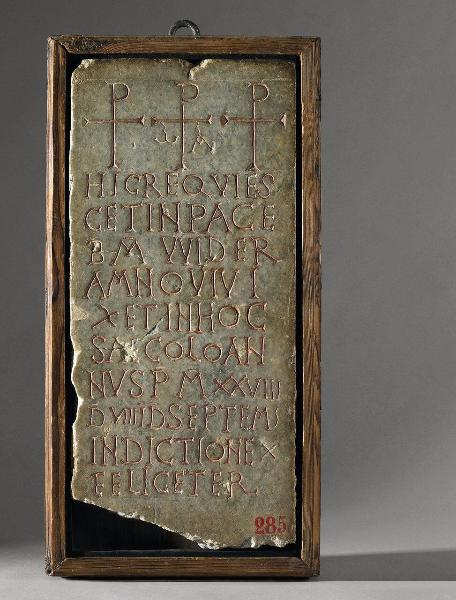 ⳨ ⳨ ⳨
ω A
HICREQVIES
CETINPACE
B M WIDER
AMNOVIVI
XETINHOC
COLOAN
NVSP M XXVIII
DVIIIIDSEPTEMS
INDICTIONEX
FELICETER
285